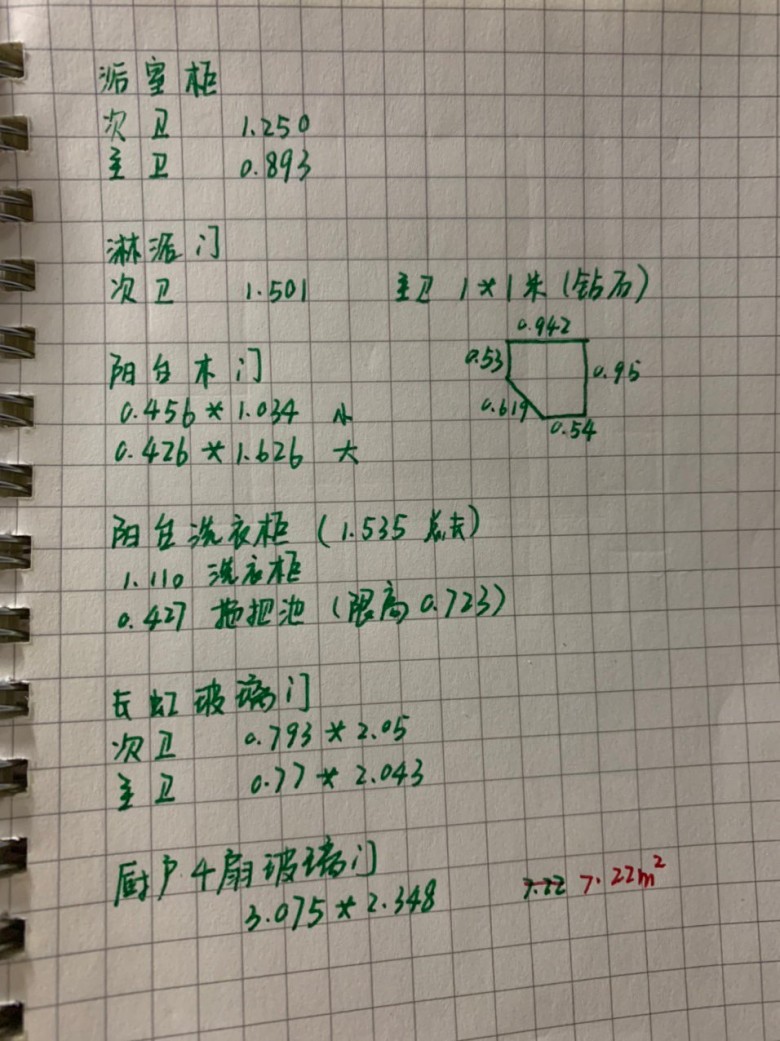 浴室柜
次卫 1.250
主卫 0.893
淋浴门
次卫 1.501 主卫 1*1米(钻石)
0.942
0.53 0.95
0.619 0.54
阳台木门
0.456*1.034 小
0.426*1.626 大
阳台洗衣柜(1.535总长)
1.110 洗衣柜
0.427 拖把池(限高0.723)
长虹玻璃门
次卫 0.793*2.05
主卫 0.77*2.043
厨户4扇玻璃门
3.075*2.348 7.22 7.22m²